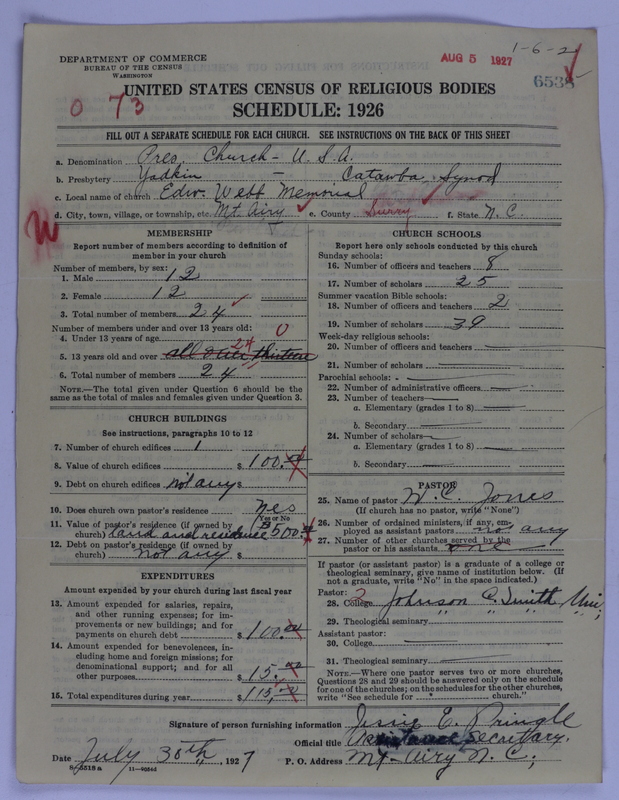 1-6-2
DEPARTMENT OF COMMERCE
BUREAU OF THE CENSUS
WASHINGTON
AUG 5 1927
6538
UNITED STATES CENSUS OF RELIGIOUS BODIES
0 73
SCHEDULE: 1926
FILL OUT A SEPARATE SCHEDULE FOR EACH CHURCH. SEE INSTRUCTIONS ON THE BACK OF THIS SHEET
a. Denomination Pres. Church - U.S.A.
b. Presbytery Yadkin - Catawba Synod
c. Local name of church Edw. Webb Memorial
d. City, town, village, or township, etc. Mt. Airy e. County Surry f. State N.C.
MEMBERSHIP
Report number of members according to definition of
member in your church
Number of members, by sex:
1. Male 12
2. Female 12
3. Total number of members 24
Number of members under and over 13 years old:
4. Under 13 years of age 0
5. 13 years old and over all over thirteen 24
6. Total number of members 24
NOTE.—The total given under Question 6 should be the
same as the total of males and females given under Question 3.
CHURCH BUILDINGS
See instructions, paragraphs 10 to 12
7. Number of church edifices 1
8. Value of church edifices $ 100.
9. Debt on church edifices not any $
10. Does church own pastor's residence Yes
Yes or No
11. Value of pastor's residence (if owned by
church) land and residence 500.
12. Debt on pastor's residence (if owned by
church) not any $
EXPENDITURES
Amount expended by your church during last fiscal year
13. Amount expended for salaries, repairs,
and other running expenses; for im-
provements or new buildings; and for
payments on church debt $ 100.00
14. Amount expended for benevolences, in-
cluding home and foreign missions; for
denominational support; and for all
other purposes $ 15.00
15. Total expenditures during year $ 115.00
CHURCH SCHOOLS
Report here only schools conducted by this church
Sunday schools:
16. Number of officers and teachers 8
17. Number of scholars 25
Summer vacation Bible schools:
18. Number of officers and teachers 2
19. Number of scholars 39
Week-day religious schools:
20. Number of officers and teachers
21. Number of scholars
Parochial schools:
22. Number of administrative officers
23. Number of teachers—
a. Elementary (grades 1 to 8)
b. Secondary
24. Number of scholars—
a. Elementary (grades 1 to 8)
b. Secondary
PASTOR
25. Name of pastor W. C. Jones
(If church has no pastor, write "None")
26. Number of ordained ministers, if any, em-
ployed as assistant pastors not any
27. Number of other churches served by the
pastor or his assistants one
If pastor (or assistant pastor) is a graduate of a college or
theological seminary, give name of institution below. (If
not a graduate, write "No" in the space indicated.)
Pastor: 2
28. College Johnson C. Smith Uni;
29. Theological seminary " " " "
Assistant pastor:
30. College
31. Theological seminary
NOTE.—Where one pastor serves two or more churches,
Questions 28 and 29 should be answered only on the schedule
for one of the churches; on the schedules for the other churches,
write "See schedule for church."
Signature of person furnishing information Jessie E. Pringle
Official title Secretary.
Date July 30th, 1927
P. O. Address Mt. Airy N.C;